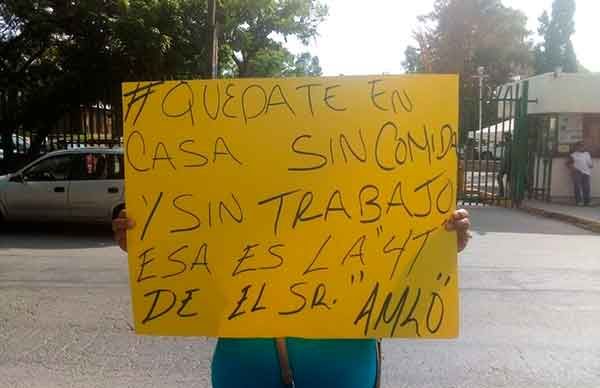 #QUEDATE EN
CASA SIN COMIDA
Y SIN TRABAJO
ESA ES LA "4T
DE EL SR. "AMLO"